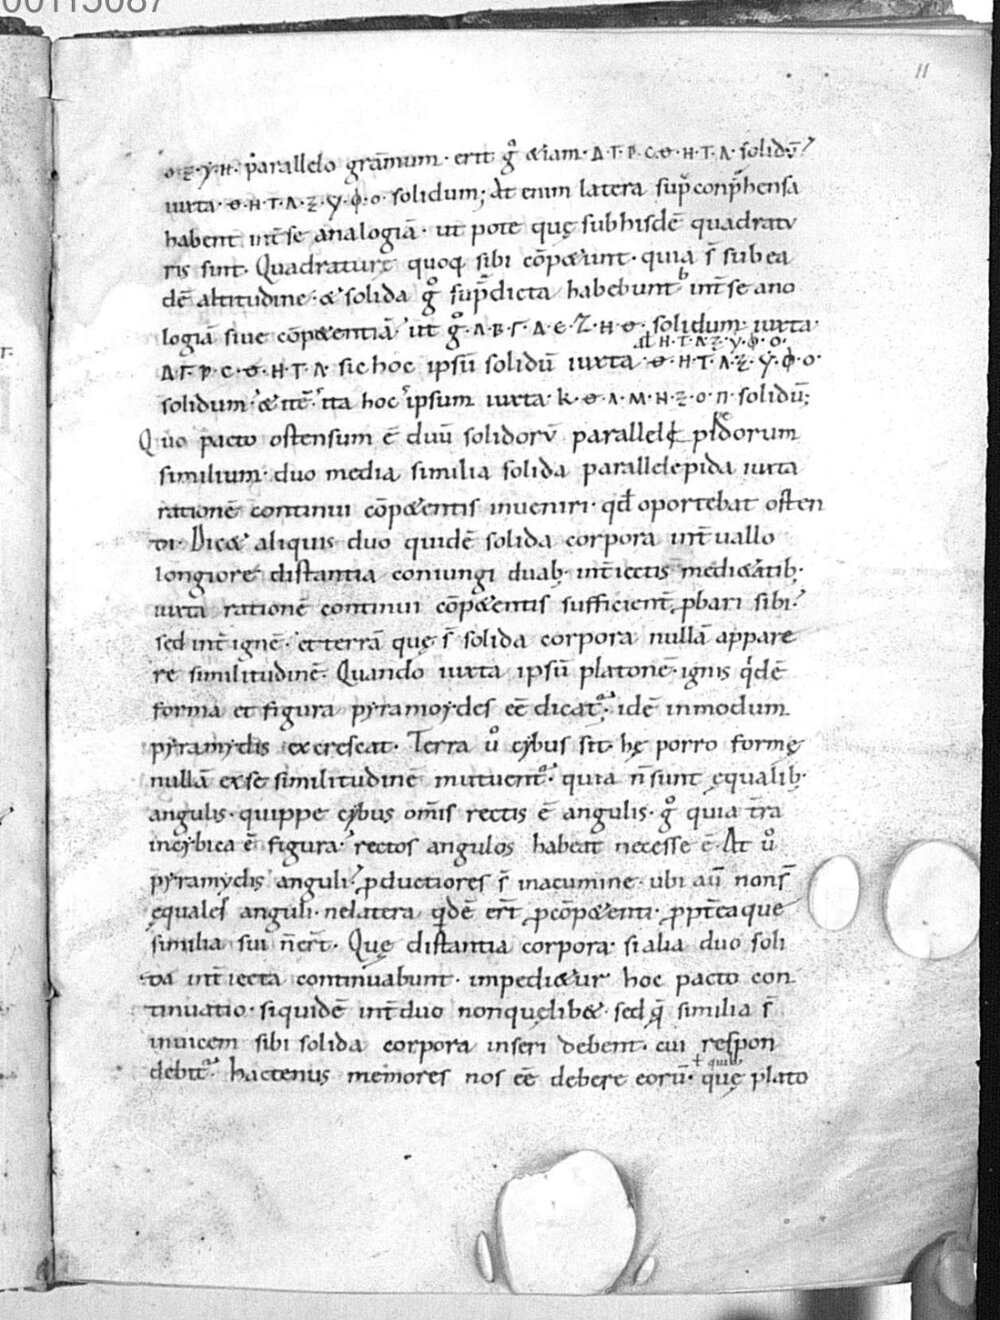 00115087
11
o·ꙁ·y·н· parallelo grāmum· erit g̊ &iam· Δ·Γ·P·C·Θ·H·T·Λ· solidū
iuxta· Θ·H·T·Λ·Ꙁ·Ψ·Φ·O· solidum; At enim latera sup̄ conp̄hensa
habent int̄ se analogiā· ut pote quę sub hisdē quadratu
ris sunt· Quadraturę quoq; sibi cōp&unt· quia s̄ sub ea
dē altitudine· & solida g̊ sup̄dicta habebunt int̄ se ano
logiā siue cōp&entiā ut g̊ Λ·B·Γ·Δ·E·Z·H·Θ· solidum iuxta
H·T·Λ·Ꙁ·Ψ·Φ·O·
Δ·Γ·P·C·Θ·H·T·Λ· sic hoc ipsū solidū iuxta Θ·H·T·Λ·Ꙁ·Ψ·Φ·O·
solidum & itē ita hoc ipsum iuxta K·Θ·Λ·M·H·Ꙁ·O·Π· solidū;
Quo pacto ostensum ē duū solidorū parallele pidorum
similium· duo media similia solida parallelepida iuxta
rationē continui cōp&entis inueniri· qd̄ oportebat osten
di· Dic& aliquis duo quidē solida corpora int̄uallo
longiore distantia coniungi duab; int̄iectis medi&atib;
iuxta rationē continui cōp&entis sufficient̄ ꝓbari sibi·
sed int̄ ignē· et terrā quę s̄ solida corpora nullā appare
re similitudinē· Quando iuxta ipsū platonē· ignis q̇dē
forma et figura pyramoydes eē dicat̄· idē inmodum
pyramydis excrescat· Terra ů cybus sit· hę porro formę
nullā ex se similitudinē mutuent̄· quia n̄ sunt ęqualib;
angulis· quippe cybus om̄is rectis ē angulis· g̊ quia t̄ra
incybica ē figura· rectos angulos habeat necesse ē· At ů
pyramydis anguli ꝓductiores s̄ inacumine· ubi aū non s̄
ęquales anguli· nelatera q̇dē er̄t ꝓcōp&enti· ꝓpt̄ea que
similia sui n̄ er̄t· Quę distantia corpora· si alia duo soli
da int̄iecta continuabunt· impedi&ur hoc pacto con
tinuatio· siquidē int̄ duo nonquęlib&· sed q̄ similia s̄
inuicem sibi solida corpora inseri debent· cui respon
debit̄· hactenus memores nos eē debere eorū· quę plato